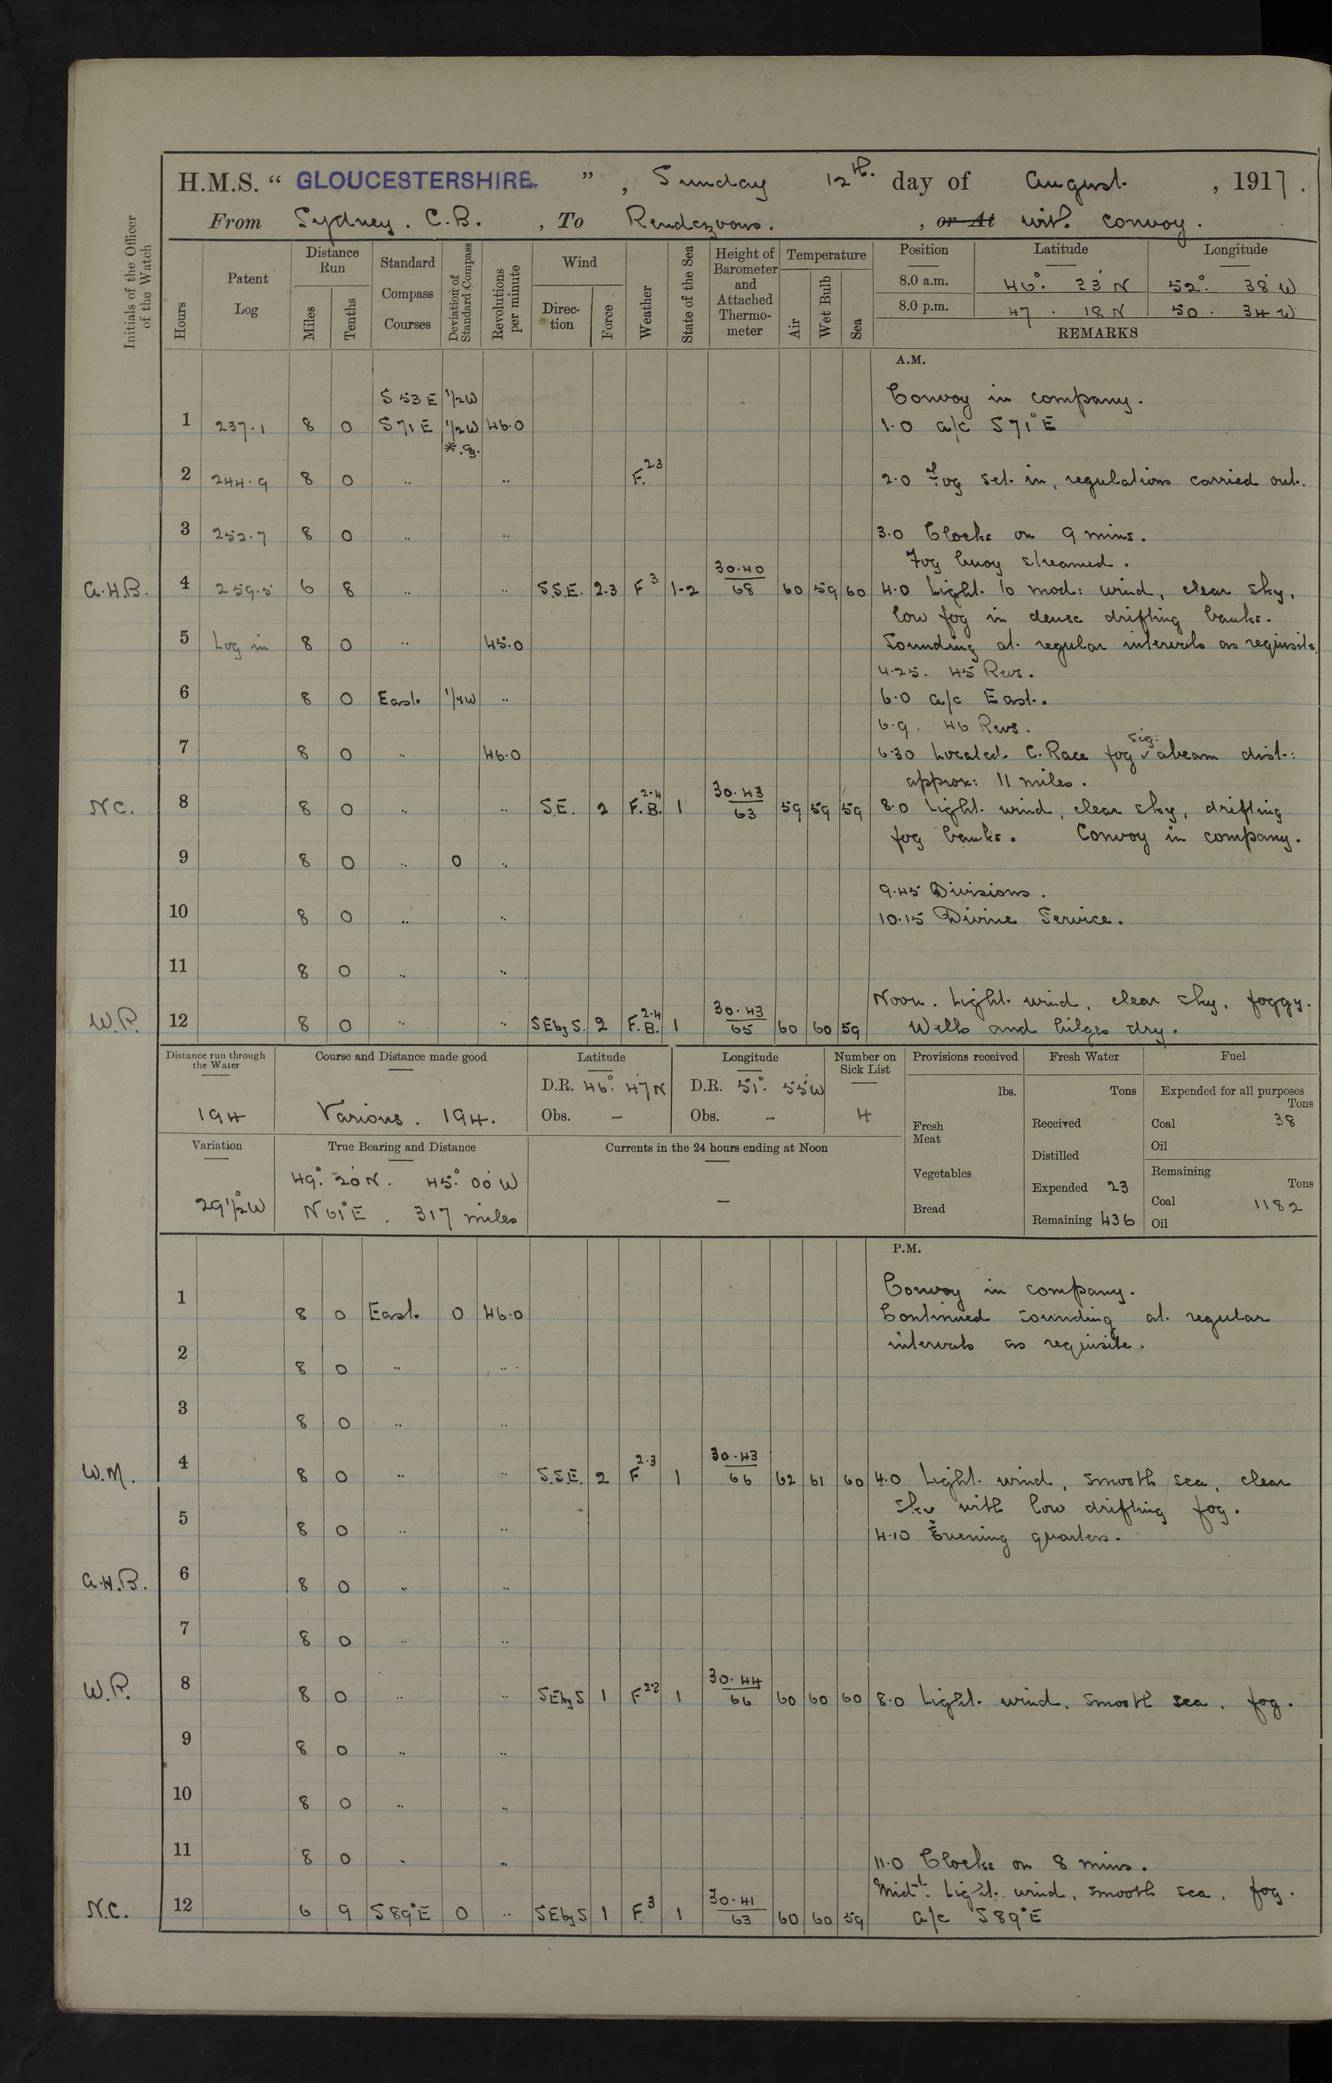 H.M.S. “ GLOUCESTERSHIRE ” , Sunday 12th. day of August , 1917 .
From Sydney. C.B. , To Rendezvous. , or At with convoy .
Initials of the Officer of the Watch
Hours Patent Log Distance Run Miles Tenths Standard Compass Courses Deviation of Standard Compass Revolutions per minute Wind Direction Force Weather State of the Sea Height of Barometer and Attached Thermometer Temperature Air Wet Bulb Sea Position Latitude Longitude
8.0 a.m. 46°. 33' N 52°. 38' W
8.0 p.m. 47 . 18 N 50 . 34 W
REMARKS
A.M.
S 53 E 1/2W Convoy in company.
1 237.1 8 0 S 71 E 1/2W 46.0 1.0 a/c S 71° E
*.9.
2 244.9 8 0 .. .. F. 2.3 2.0 Fog set in, regulations carried out.
3 252.7 8 0 .. .. 3.0 Clocks on 9 mins.
Fog buoy streamed.
A.H.B. 4 259.5 6 8 .. .. S.S.E. 2.3 F 3 1-2 30.40/68 60 59 60 4.0 Light to mod: wind, clear sky,
low fog in dense drifting banks.
5 Log in 8 0 .. 45.0 Sounding at regular intervals as requisite.
4.25. 45 Revs.
6 8 0 East. 1/4W .. 6.0 a/c East.
6.9. 46 Revs.
7 8 0 .. 46.0 6.30 Located C. Race fog sig: abeam dist:
approx: 11 miles.
N.C. 8 8 0 .. .. S.E. 2 F.B. 2.4 1 30.43/63 59 59 59 8.0 Light wind, clear sky, drifting
fog banks. Convoy in company.
9 8 0 .. 0 ..
9.45 Divisions.
10 8 0 .. .. 10.15 Divine Service.
11 8 0 .. ..
Noon. Light wind, clear sky, foggy.
W.P. 12 8 0 .. .. SE by S. 2 F.B. 2.4 1 30.43/65 60 60 59 Wells and bilges dry.
Distance run through the Water Course and Distance made good Latitude Longitude Number on Sick List Provisions received Fresh Water Fuel
194 Various . 194. D.R. 46°. 47' N D.R. 51°. 55' W 4
Obs. – Obs. –
lbs. Tons Expended for all purposes Tons
Fresh Meat Received Coal 38
Distilled Oil
Variation True Bearing and Distance Currents in the 24 hours ending at Noon
29 1/2° W 49°. 20' N. 45°. 00' W –
N 61° E . 317 miles
Vegetables Expended 23 Remaining Tons
Coal 1182
Bread Remaining 436 Oil
P.M.
Convoy in company.
1 8 0 East. 0 46.0 Continued sounding at regular
intervals as requisite.
2 8 0 .. ..
3 8 0 .. ..
W.M. 4 8 0 .. .. S.S.E. 2 F. 2.3 1 30.43/66 62 61 60 4.0 Light wind, smooth sea, clear
sky with low drifting fog.
5 8 0 .. .. 4.10 Evening quarters.
A.H.B. 6 8 0 .. ..
7 8 0 .. ..
W.P. 8 8 0 .. .. SE by S 1 F 2.3 1 30.44/66 60 60 60 8.0 Light wind, smooth sea, fog.
9 8 0 .. ..
10 8 0 .. ..
11 8 0 .. .. 11.0 Clocks on 8 mins.
Midt. Light wind, smooth sea, fog.
N.C. 12 6 9 S 89° E 0 .. SE by S 1 F. 3 1 30.41/63 60 60 59 a/c S 89° E